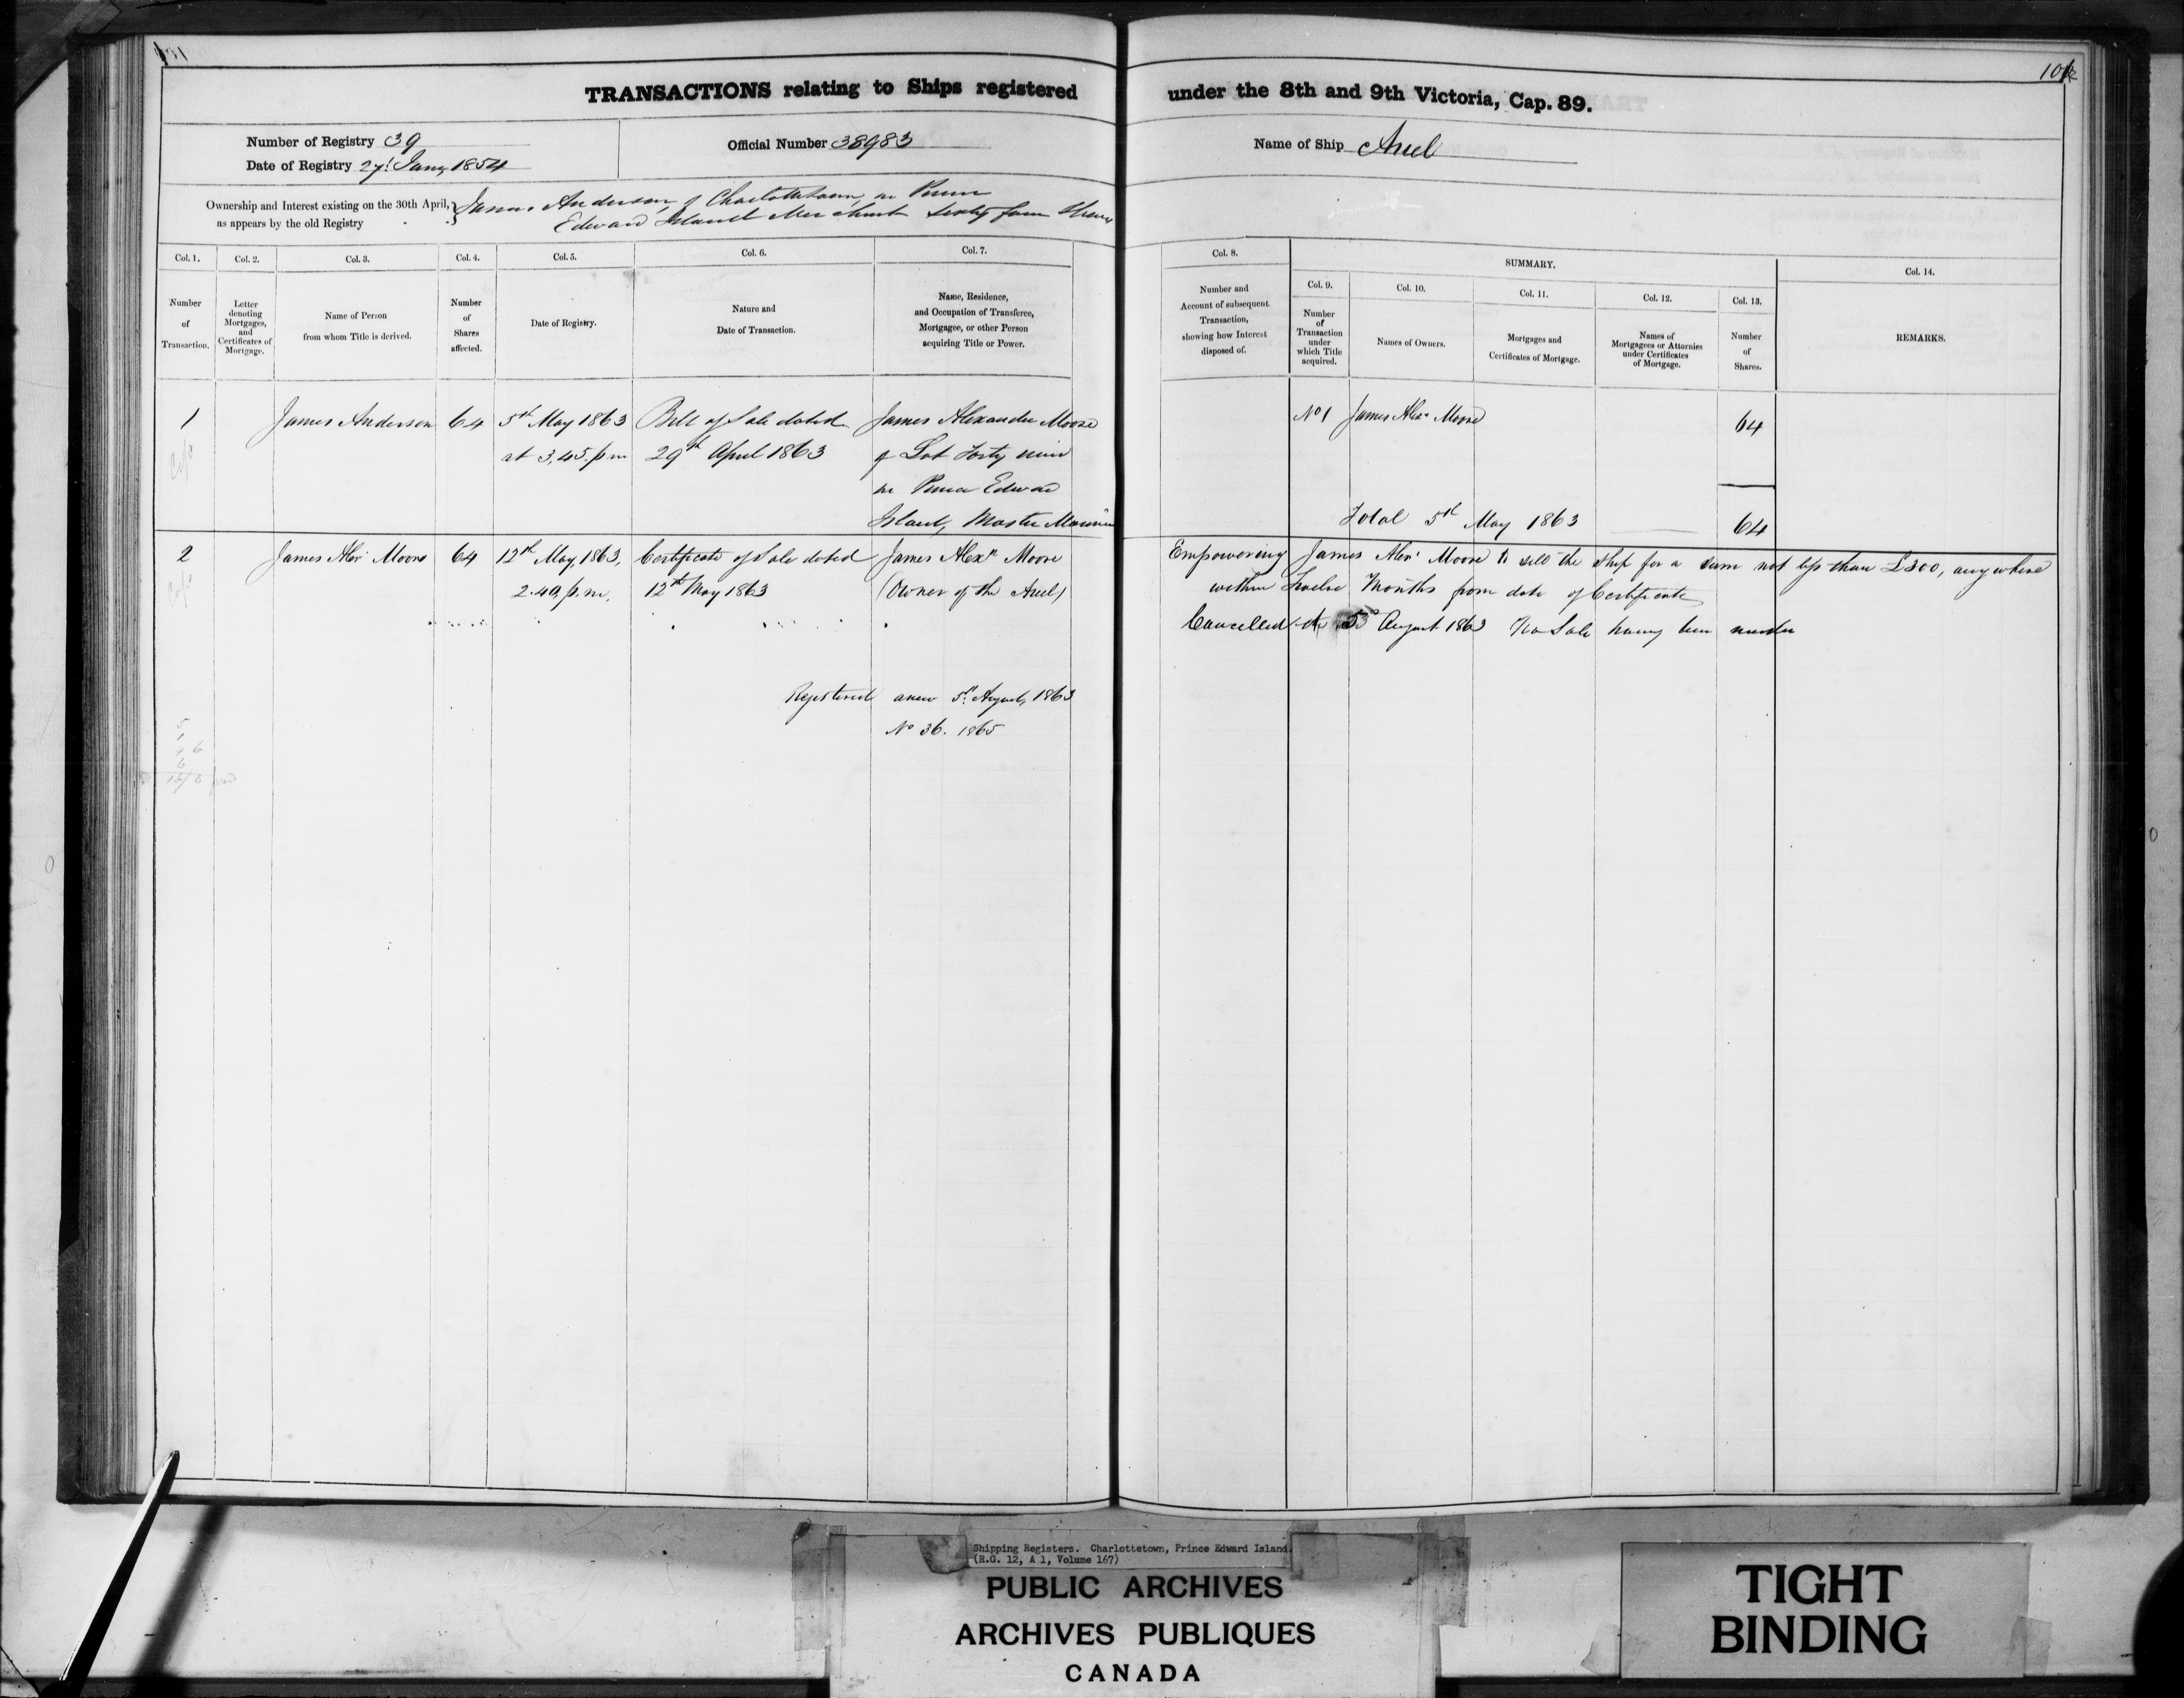 TRANSACTIONS relating to Ships registered under the 8th and 9th Victoria, Cap. 89.
Number of Registry 39
Date of Registry 27th Jany 1854
Official Number 38983
Name of Ship Ariel
Ownership and Interest existing on the 30th April, as appears by the old Registry
James Anderson, of Charlottetown, in Prince
Edward Island Merchant Sixty four Shares
Col. 1. Number of Transaction.
Col. 2. Letter denoting Mortgages, and Certificates of Mortgage.
Col. 3. Name of Person from whom Title is derived.
Col. 4. Number of Shares affected.
Col. 5. Date of Registry.
Col. 6. Nature and Date of Transaction.
Col. 7. Name, Residence, and Occupation of Transferee, Mortgagee, or other Person acquiring Title or Power.
Col. 8. Number and Account of subsequent Transaction, showing how Interest disposed of.
SUMMARY.
Col. 9. Number of Transaction under which Title acquired.
Col. 10. Names of Owners.
Col. 11. Mortgages and Certificates of Mortgage.
Col. 12. Names of Mortgagees or Attornies under Certificates of Mortgage.
Col. 13. Number of Shares.
Col. 14. REMARKS.
1 James Anderson 64 5th May 1863 Bill of Sale dated James Alexander Moore No 1 James Alexr Moore 64
at 3,45. p.m 29th April 1863 of Lot Forty nine
in Prince Edward
Island, Master Mariner Total 5th May 1863 64
2 James Alexr Moore 64 12th May, 1863, Certificate of Sale dated James Alexr Moore Empowering James Alexr Moore to sell the Ship for a sum not less than £300, anywhere
2.40, p.m. 12th May 1863 (Owner of the Ariel) within Twelve Months from date of Certificate
Cancelled the 5th August 1863 No Sale having been made
Registered anew 5th August, 1863
No 36. 1865
Shipping Registers. Charlottetown, Prince Edward Island.
(R.G. 12, A 1, Volume 167)
PUBLIC ARCHIVES
ARCHIVES PUBLIQUES
CANADA
TIGHT
BINDING